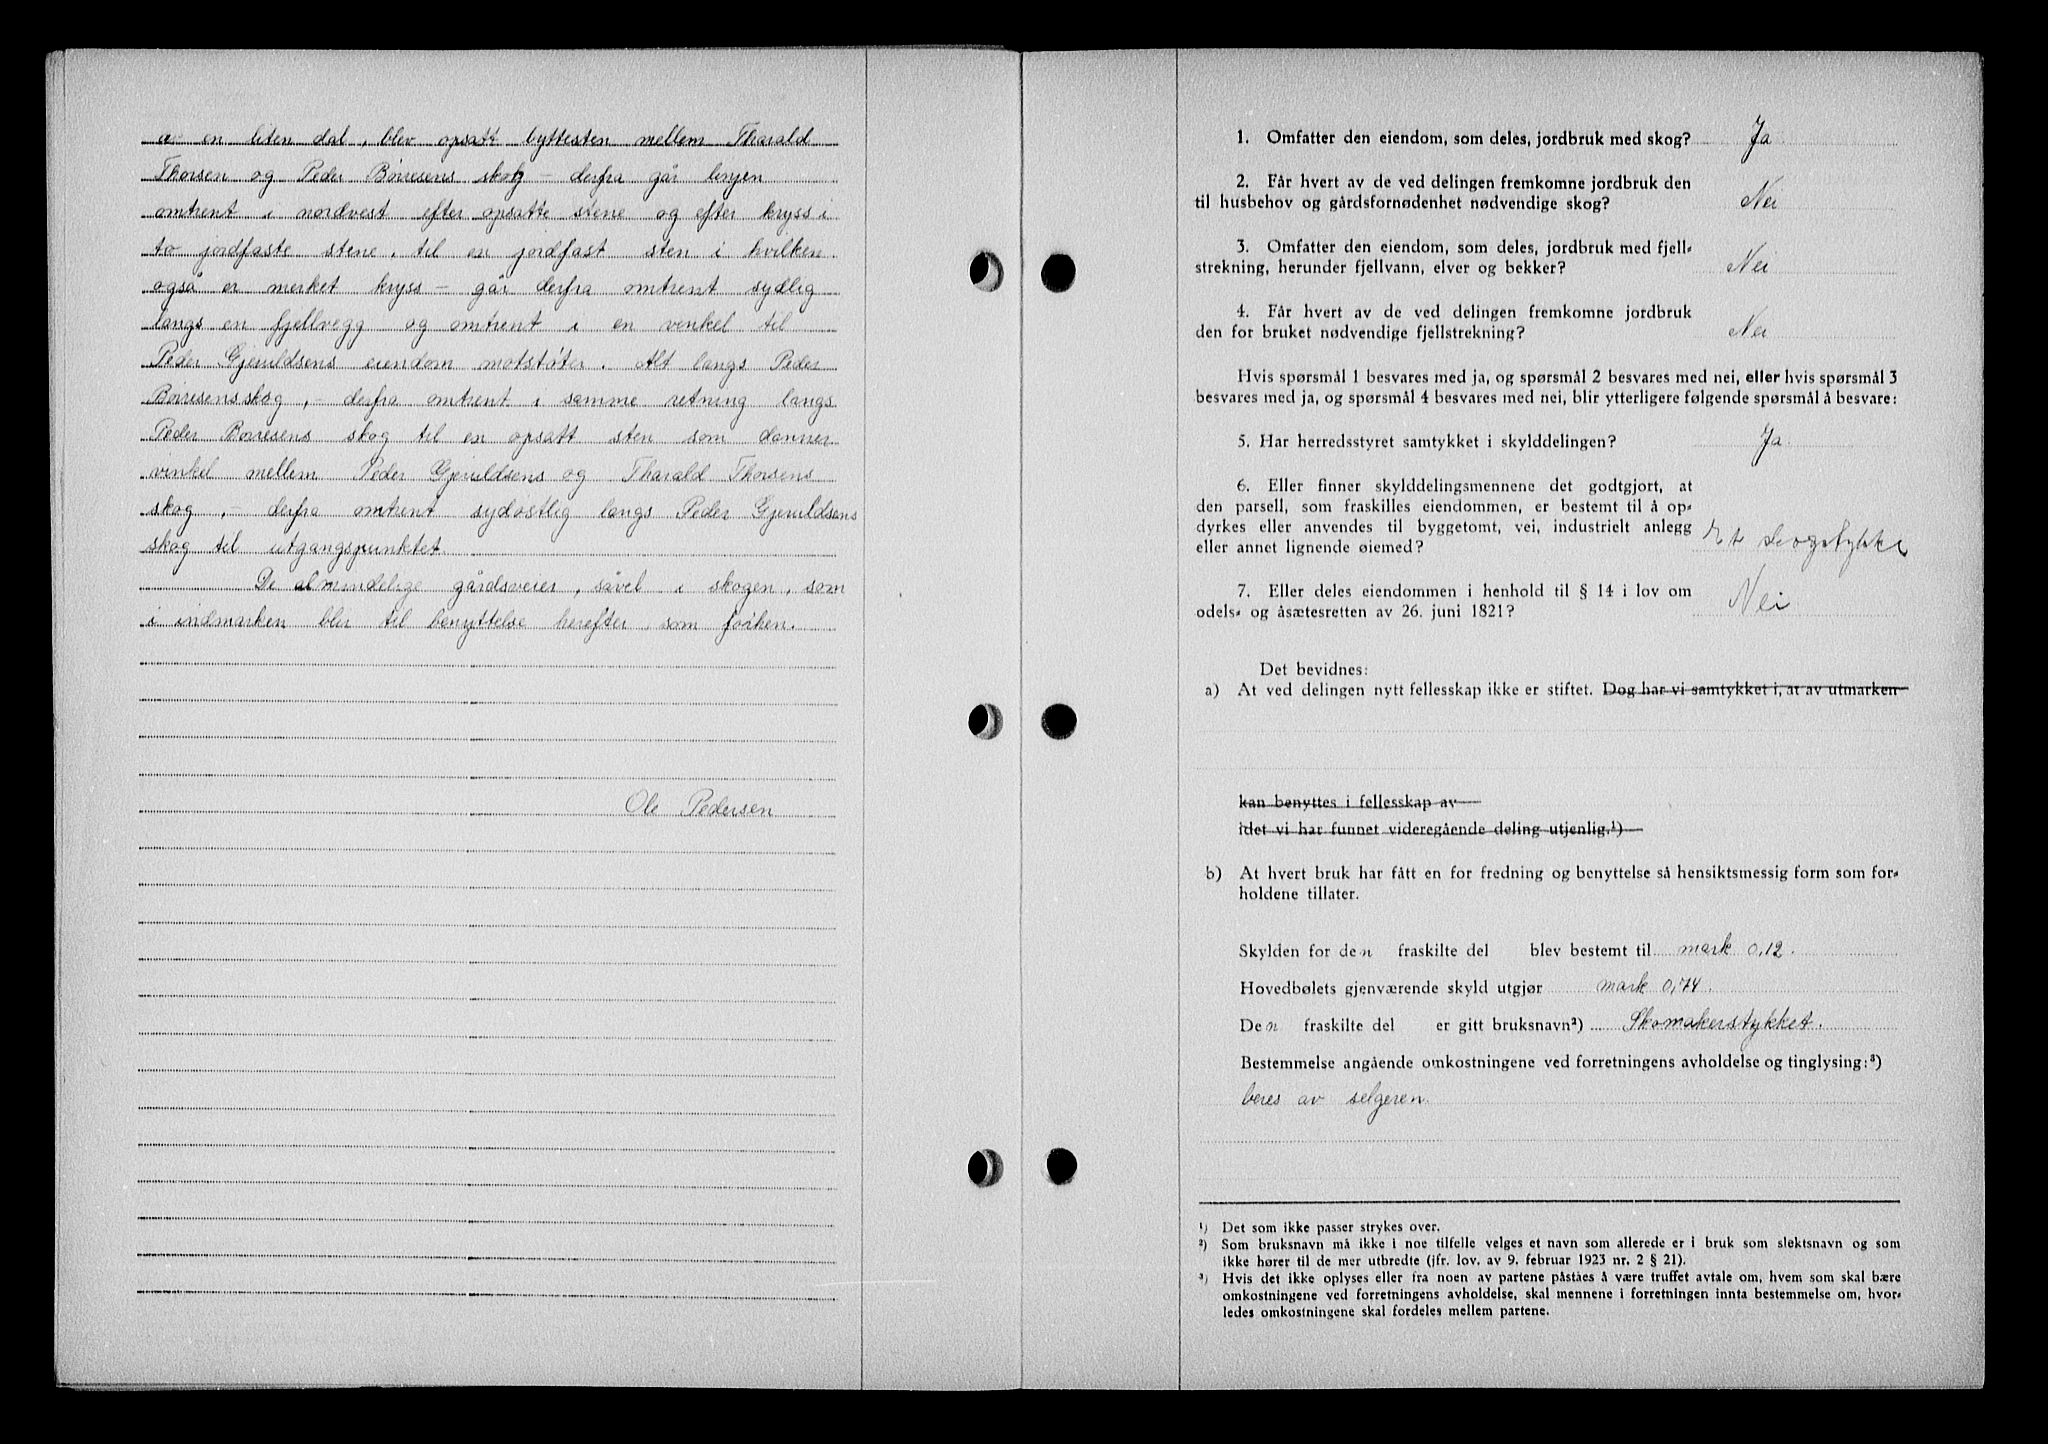 av en liten dal, blev opsatt byttesten mellem Tharald
Thorsen og Peder Børresens skog – derfra går linjen
omtrent i nordvest efter opsatte stene og efter kryss i
to jordfaste stene, til en jordfast sten i hvilken
også er merket kryss – går derfra omtrent sydlig
langs en fjellvegg og omtrent i en vinkel til
Peder Gjeruldsens eiendom motstøter. Alt langs Peder
Børresens skog, – derfra omtrent i samme retning langs
Peder Børresens skog til en opsatt sten som danner
vinkel mellem Peder Gjeruldsens og Tharald Thorsens
skog, – derfra omtrent sydøstlig langs Peder Gjeruldsens
skog til utgangspunktet.
De almindelige gårdsveier, såvel i skogen, som
i indmarken blir til benyttelse herefter, som förhen.
Ole Pedersen
1. Omfatter den eiendom, som deles, jordbruk med skog? Ja
2. Får hvert av de ved delingen fremkomne jordbruk den
til husbehov og gårdsfornødenhet nødvendige skog? Nei
3. Omfatter den eiendom, som deles, jordbruk med fjell-
strekning, herunder fjellvann, elver og bekker? Nei
4. Får hvert av de ved delingen fremkomne jordbruk
den for bruket nødvendige fjellstrekning? Nei
Hvis spørsmål 1 besvares med ja, og spørsmål 2 besvares med nei, eller hvis spørsmål 3
besvares med ja, og spørsmål 4 besvares med nei, blir ytterligere følgende spørsmål å besvare:
5. Har herredsstyret samtykket i skylddelingen? Ja
6. Eller finner skylddelingsmennene det godtgjort, at
den parsell, som fraskilles eiendommen, er bestemt til å op-
dyrkes eller anvendes til byggetomt, vei, industrielt anlegg
eller annet lignende øiemed? Et skogstykke
7. Eller deles eiendommen i henhold til § 14 i lov om
odels- og åsætesretten av 26. juni 1821? Nei
Det bevidnes:
a) At ved delingen nytt fellesskap ikke er stiftet. Dog har vi samtykket i, at av utmarken
kan benyttes i fellesskap av
idet vi har funnet videregående deling utjenlig.¹)
b) At hvert bruk har fått en for fredning og benyttelse så hensiktsmessig form som for-
holdene tillater.
Skylden for den fraskilte del blev bestemt til mark 0,12.
Hovedbølets gjenværende skyld utgjør mark 0,74.
Den fraskilte del er gitt bruksnavn²) Skomakerstykket.
Bestemmelse angående omkostningene ved forretningens avholdelse og tinglysing:³)
beres av selgeren.
¹) Det som ikke passer strykes over.
²) Som bruksnavn må ikke i noe tilfelle velges et navn som allerede er i bruk som slektsnavn og som
ikke hører til de mer utbredte (jfr. lov. av 9. februar 1923 nr. 2 § 21).
³) Hvis det ikke oplyses eller fra noen av partene påståes å være truffet avtale om, hvem som skal bære
omkostningene ved forretningens avholdelse, skal mennene i forretningen innta bestemmelse om, hvor-
ledes omkostningene skal fordeles mellem partene.